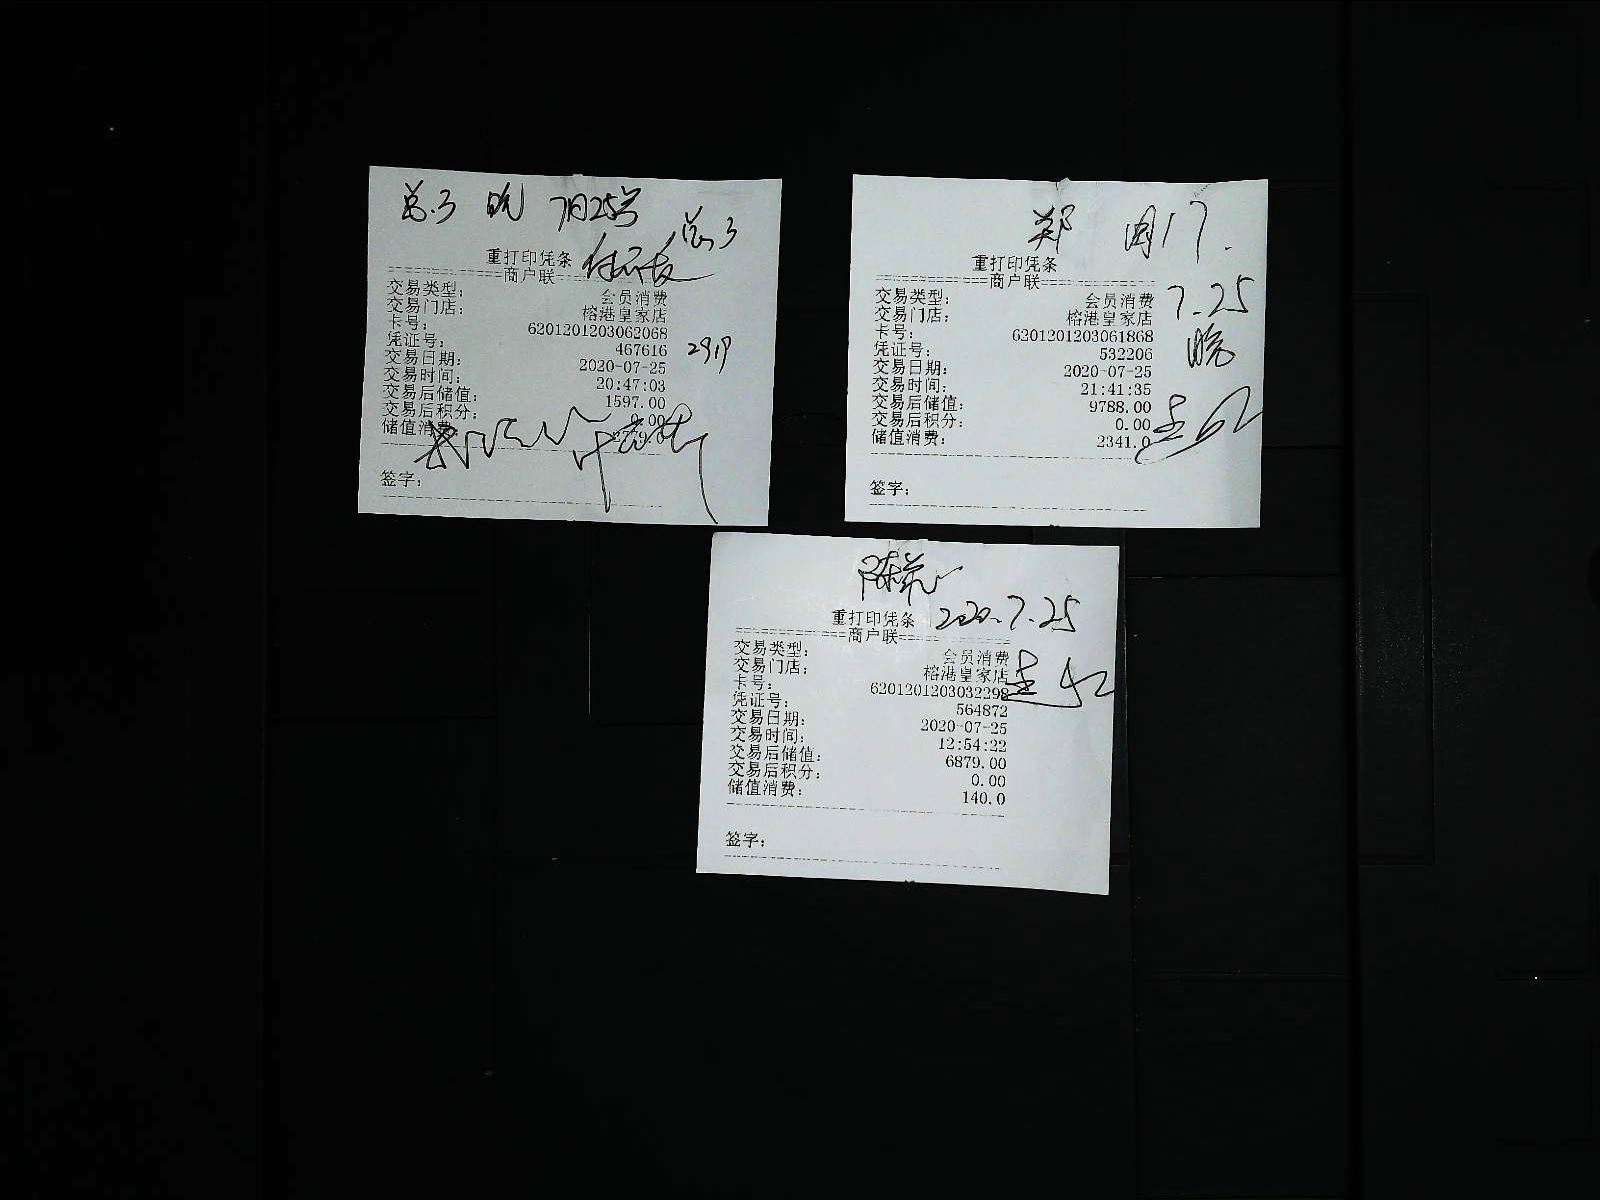 总.3 晚 7月25号
总3
重打印凭条
商户联
交易类型: 会员消费
交易门店: 榕港皇家店
卡号: 6201201203062068
凭证号: 467616
交易日期: 2020-07-25
交易时间: 20:47:03
交易后储值: 1597.00
交易后积分: 0.00
储值消费:
签字:
郑 17.
重打印凭条
商户联
7.25
交易类型: 会员消费
交易门店: 榕港皇家店
卡号: 6201201203061868
晚
凭证号: 532206
交易日期: 2020-07-25
交易时间: 21:41:35
交易后储值: 9788.00
交易后积分: 0.00
储值消费: 2341.0
签字:
重打印凭条 2020.7.25
商户联
交易类型: 会员消费
交易门店: 榕港皇家店
卡号: 6201201203032298
凭证号: 564872
交易日期: 2020-07-25
交易时间: 12:54:22
交易后储值: 6879.00
交易后积分: 0.00
储值消费: 140.0
签字: